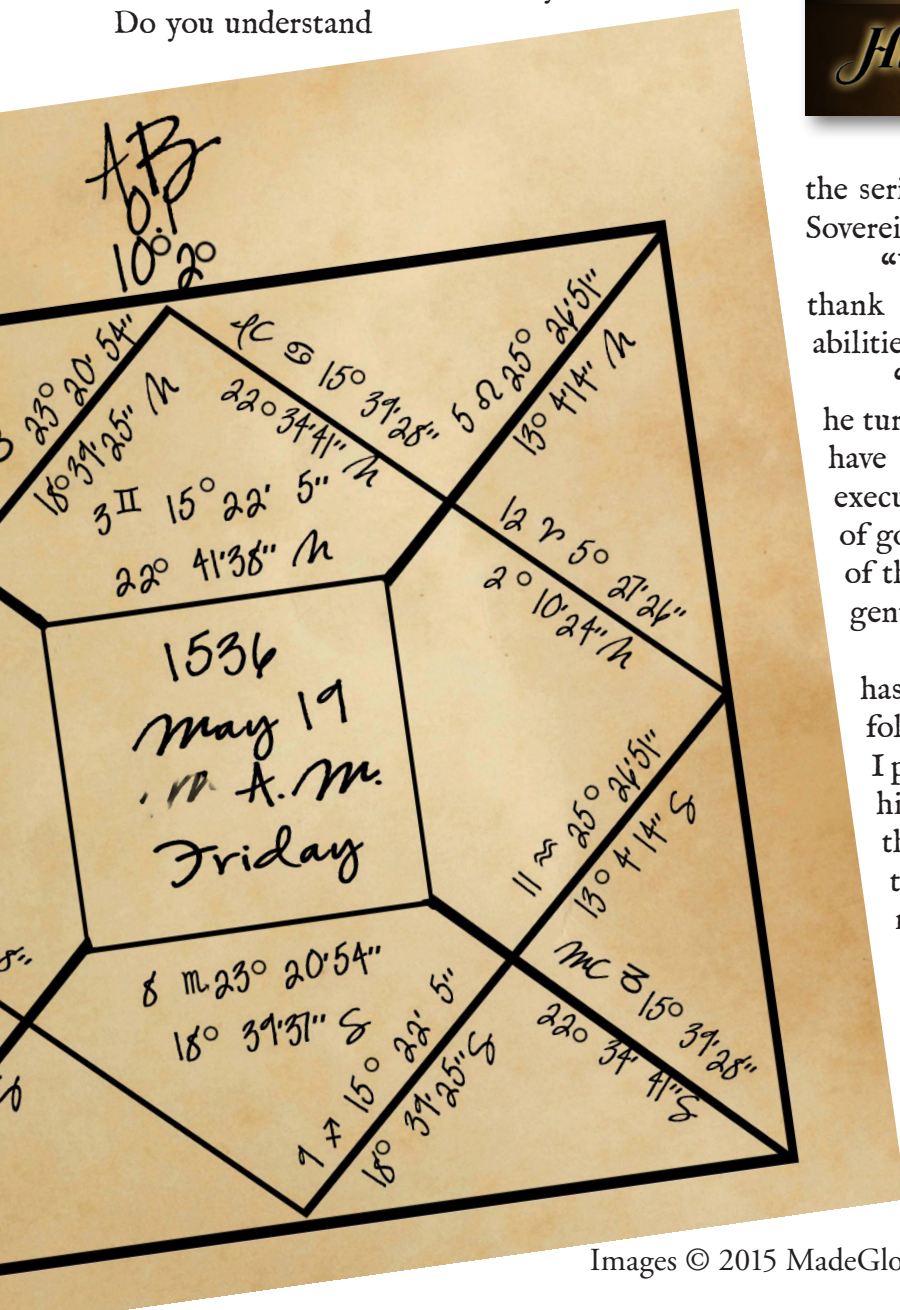 Do you understand
AB
0.1
10° 2°
23° 20' 54"
18° 39' 25" N
IC ♋ 15° 39' 28"
22° 34' 41" N
5 ♌ 25° 26' 51"
13° 4' 14" N
3 ♊ 15° 22' 5"
22° 41' 38" N
12 ♈ 5° 27' 26"
2° 10' 24" N
1536
May 19
A.M.
Friday
11 ♒ 25° 26' 51"
13° 4' 14" S
MC ♑ 15° 39' 28"
22° 34' 41" S
8 ♏ 23° 20' 54"
18° 39' 37" S
9 ♐ 15° 22' 5"
18° 39' 25" S
8"
the seri
Soverei
thank
abilitie
he tur
have
execu
of go
of th
gent
has
fol
I p
hi
th
t
Images © 2015 MadeGlo